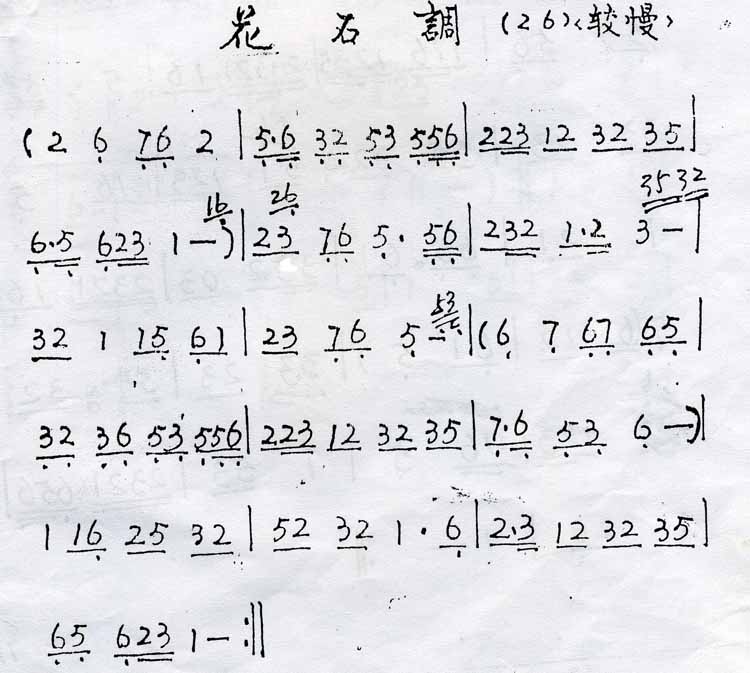 花石調 (26)<较慢>
(2 6 76 2 | 5·6 32 53 556 | 223 12 32 35 |
16 26 35 32
6·5 623 1 —)| 23 76 5· 56 | 232 1·2 3 — |
53
32 1 15 61 | 23 76 5 — |(6 7 67 65 |
32 36 53 556 | 223 12 32 35 | 7·6 53 6 —)|
1 16 25 32 | 52 32 1· 6 | 2·3 12 32 35 |
65 623 1 — :||